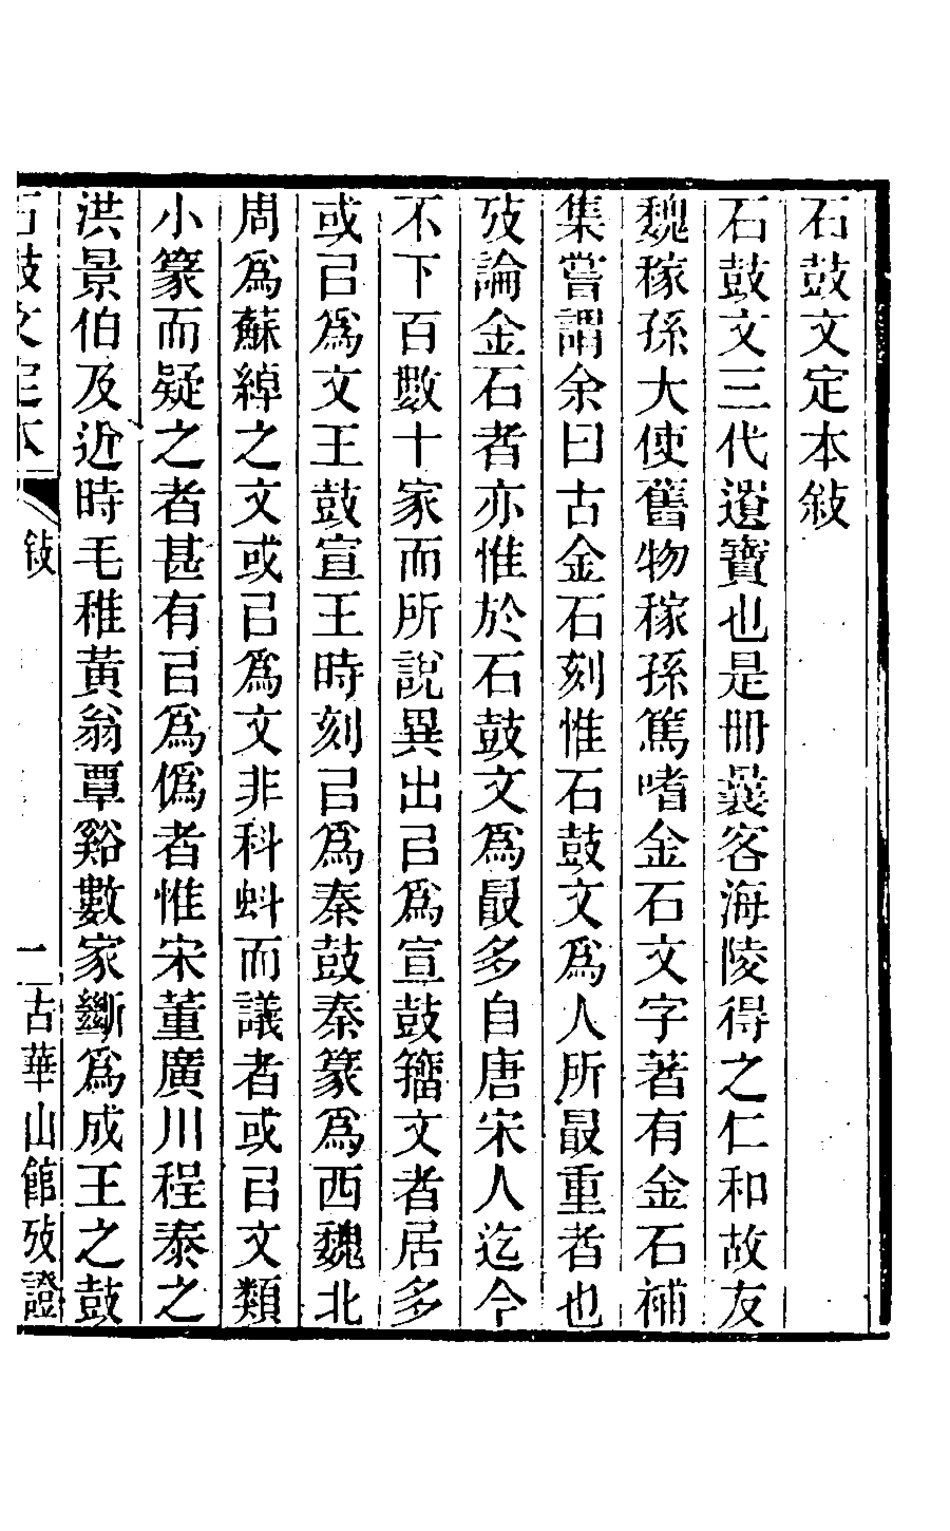 石鼓文定本敍
石鼓文三代遺寶也是冊曩客海陵得之仁和故友
魏稼孫大使舊物稼孫篤嗜金石文字著有金石補
集嘗謂余曰古金石刻惟石鼓文爲人所最重者也
攷論金石者亦惟於石鼓文爲最多自唐宋人迄今
不下百數十家而所說異出㠯爲宣鼓籀文者居多
或㠯爲文王鼓宣王時刻㠯爲秦鼓秦篆爲西魏北
周爲蘇綽之文或㠯爲文非科蚪而議者或㠯文類
小篆而疑之者甚有㠯爲僞者惟宋董廣川程泰之
洪景伯及近時毛稚黃翁覃谿數家斷爲成王之鼓
石鼓文定本 敍 一 古華山館攷證